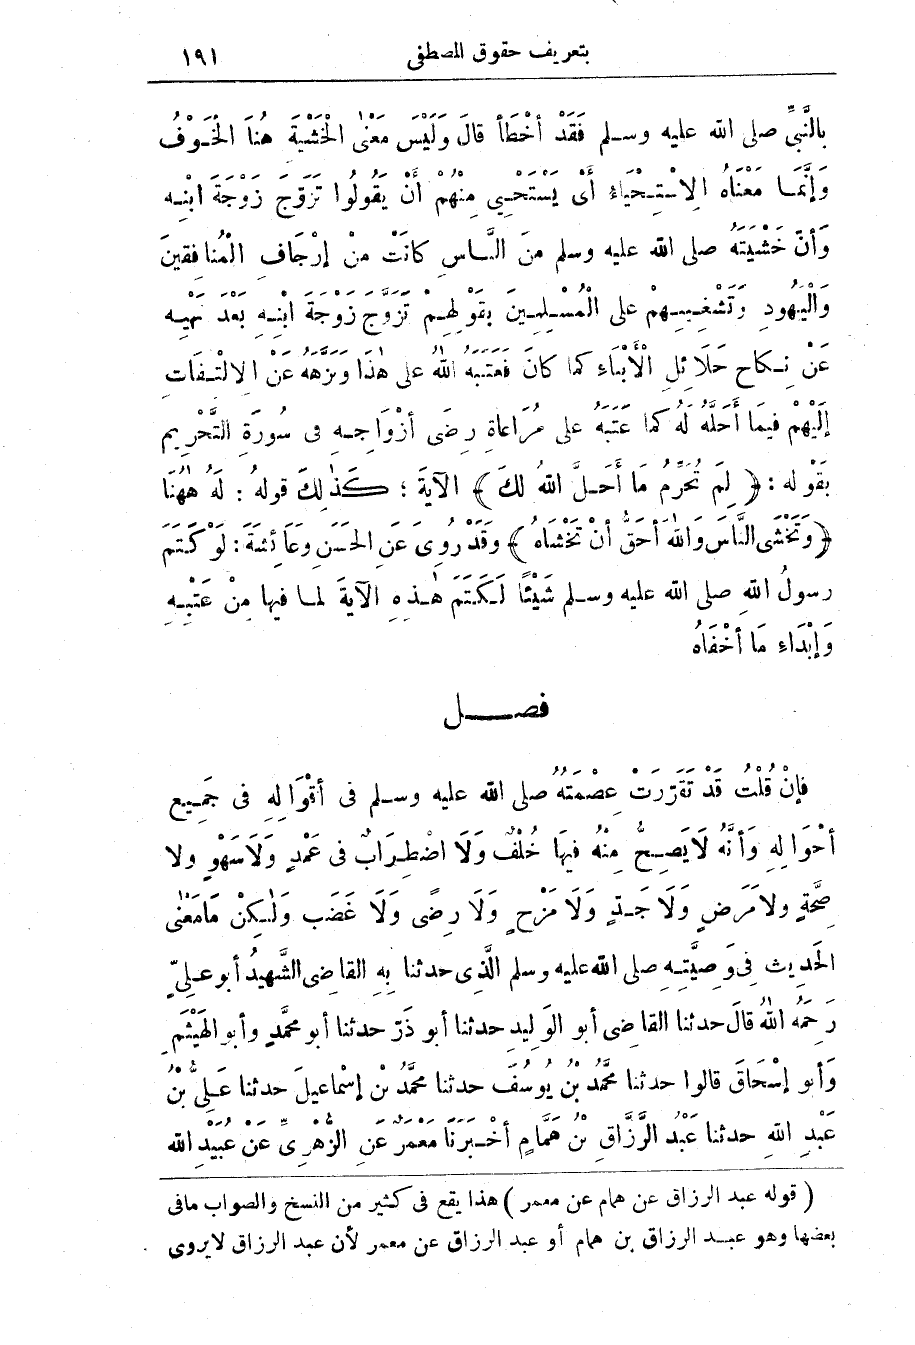 بتعريف حقوق المصطفى ١٩١
بِالنَّبِيِّ صلى الله عليه وسـلم فَقَدْ أَخْطَأَ قالَ وَلَيْسَ مَعْنَى الْخَشْيَةِ هُنَا الْخَـوْفُ
وَإِنَّمَـا مَعْنَاهُ الِاسْتِـحْيَاءُ أَىْ يَسْتَحْـيِى مِنْهُمْ أَنْ يَقُولُوا تَزَوَّجَ زَوْجَةَ ابْنِـهِ
وَأَنَّ خَشْيَتَهُ صلى الله عليه وسلم مِنَ النَّـاسِ كَانَتْ مِنْ إِرْجَافِ الْمُنَافِقِينَ
وَالْيَهُودِ وَتَشْغِيبِـهِمْ عَلَى الْمُسْـلِمِـينَ بِقَوْلِهِـمْ تَزَوَّجَ زَوْجَةَ ابْنِـهِ بَعْدَ نَهْيِـهِ
عَنْ نِـكَاحِ حَلَائِلِ الْأَبْنَاءِ كَمَا كَانَ فَعَتَبَهُ اللهُ عَلَى هٰذَا وَنَزَّهَهُ عَنْ الِالْتِـفَاتِ
إِلَيْهِمْ فِيمَا أَحَلَّهُ لَهُ كَمَا عَتَبَهُ عَلَى مُرَاعَاةِ رِضَى أَزْوَاجِـهِ فى سُورَةِ التَّحْرِيمِ
بِقَوْلِهِ : ﴿ لِمَ تُحَرِّمُ مَا أَحَـلَّ اللهُ لَكَ ﴾ الآيَةَ ؛ كَـذٰلِكَ قولُهُ : لَهُ هٰهُنَا
﴿ وَتَخْشَى النَّاسَ وَاللهُ أَحَقُّ أَنْ تَخْشَاهُ ﴾ وَقَدْ رُوِىَ عَنِ الحَسَنِ وعَائِشَةَ : لَوْ كَتَمَ
رسولُ اللهِ صلى الله عليه وسـلم شَيْئًا لَـكَتَمَ هٰـذِهِ الآيَةَ لمـا فيها مِنْ عَتْبِـهِ
وَإِبْدَاءِ مَا أَخْفَاهُ
فصـــل
فَإِنْ قُلْتَ قَدْ تَقَرَّرَتْ عِصْمَتُهُ صلى الله عليه وسـلم فى أَقْوَالِهِ فى جَمِـيعِ
أَحْوَالِهِ وَأَنَّهُ لَا يَصِـحُّ مِنْهُ فِيهَا خُلْفٌ وَلَا اضْطِـرَابٌ فى عَمْدٍ وَلَا سَهْوٍ ولا
صِحَّةٍ ولا مَرَضٍ وَلَا جَـدٍّ وَلَا مَزْحٍ وَلَا رِضًى وَلَا غَضَبٍ وَلٰـكِنْ مَا مَعْنَى
الحَدِيثِ فِى وَصِيَّتِـهِ صلى الله عليه وسلم الَّذِى حدثنا بِهِ القاضى الشَّهِيدُ أبو عـلِىٍّ
رَحِمَهُ اللهُ قَالَ حدثنا القاضى أبو الوَلِيدِ حدثنا أبو ذَرٍّ حدثنا أبو مُحَمَّدٍ وأبو الهَيْثَمِ
وَأَبو إِسْحَاقَ قالوا حدثنا مُحَمَّدُ بْنُ يُوسُفَ حدثنا مُحَمَّدُ بْنُ إِسْمَاعِيلَ حدثنا عَـلِىُّ بْنُ
عَبْدِ اللهِ حدثنا عَبْدُ الرَّزَّاقِ بْنُ هَمَّامٍ أَخْـبَرَنَا مَعْمَرٌ عَنِ الزُّهْرِىِّ عَنْ عُبَيْدِ الله
( قوله عبد الرزاق عن همام عن معمر ) هذا يقع فى كثير من النسخ والصواب مافى
بعضها وهو عبـد الرزاق بن همام أو عبد الرزاق عن معمر لأن عبد الرزاق لايروى